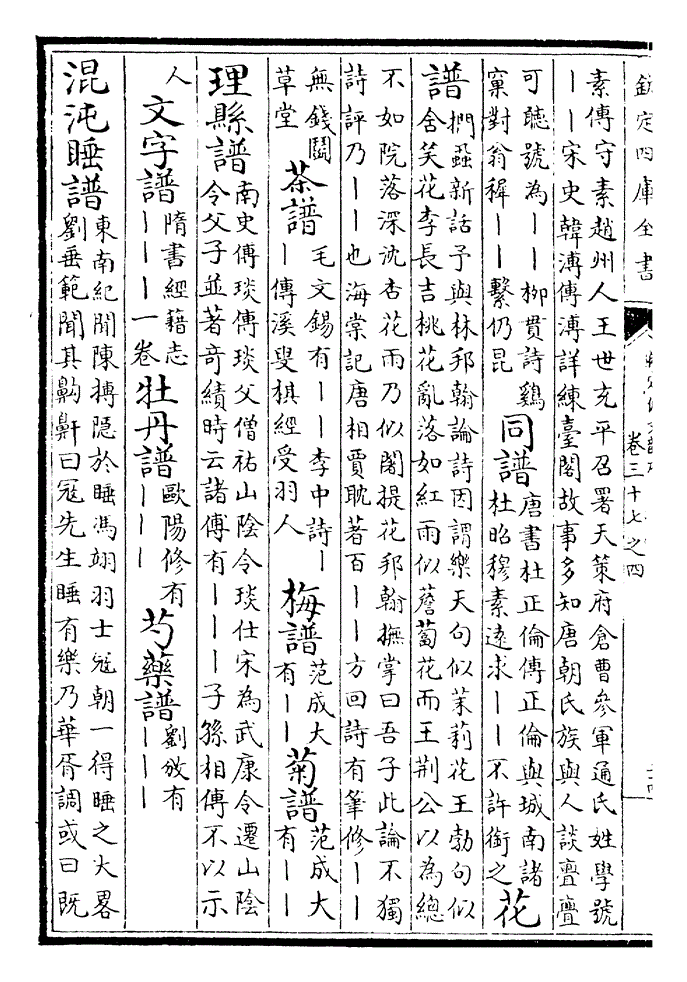 欽定四庫全書
卷三十七之四
素傳守素趙州人王世充平召署天策府倉曹參軍通氏姓學號
丨丨宋史韓溥傳溥詳練臺閣故事多知唐朝氏族與人談亹亹
可聽號為丨丨柳貫詩鷄
窠對翁稺丨丨繫仍昆
同譜
唐書杜正倫傳正倫與城南諸
杜昭穆素遠求丨丨不許銜之
花
譜
捫蝨新話予與林邦翰論詩因謂樂天句似茉莉花王勃句似
含笑花李長吉桃花亂落如紅雨似薝蔔花而王荆公以為總
不如院落深沈杏花雨乃似闍提花邦翰撫掌曰吾子此論不獨
詩評乃丨丨也海棠記唐相賈耽著百丨丨方回詩有筆修丨丨
無錢闘
草堂
茶譜
毛文錫有丨丨李中詩丨
丨傳溪叟棋經受羽人
梅譜
范成大
有丨丨
菊譜
范成大
有丨丨
理縣譜
南史傅琰傳琰父僧祐山陰令琰仕宋為武康令遷山陰
令父子並著竒績時云諸傅有丨丨丨子孫相傳不以示
人
文字譜
隋書經籍志
丨丨丨一卷
牡丹譜
歐陽修有
丨丨丨
芍藥譜
劉攽有
丨丨丨
混沌睡譜
東南紀聞陳摶隱於睡馮翊羽士冦朝一得睡之大畧
劉垂範聞其齁鼾曰冦先生睡有樂乃華胥調或曰既